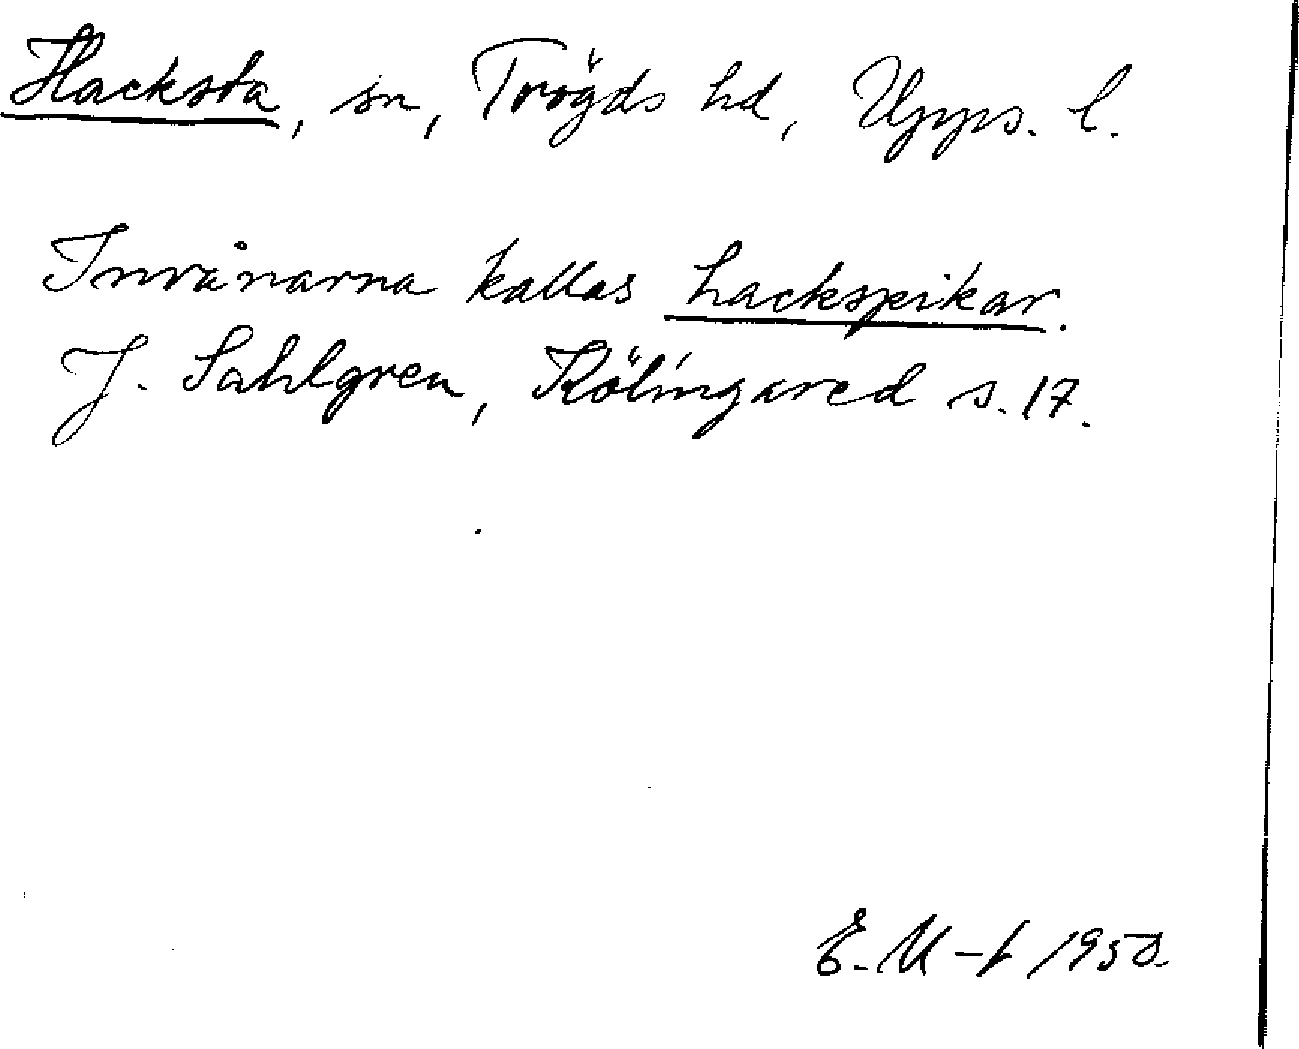 Hacksta, sn, Trögds hd, Upps. l.
Invånarna kallas hackspikar.
J. Sahlgren, Kölingared s. 17.
E. U-t 1950.